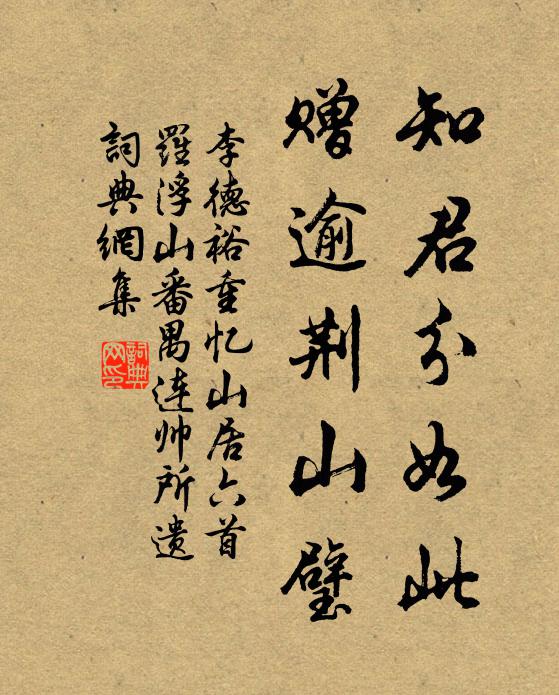 知君分如此
赠逾荆山璧
李德裕重忆山居六首
羅浮山番禺连帅所遗
詞典網集
詞典網印